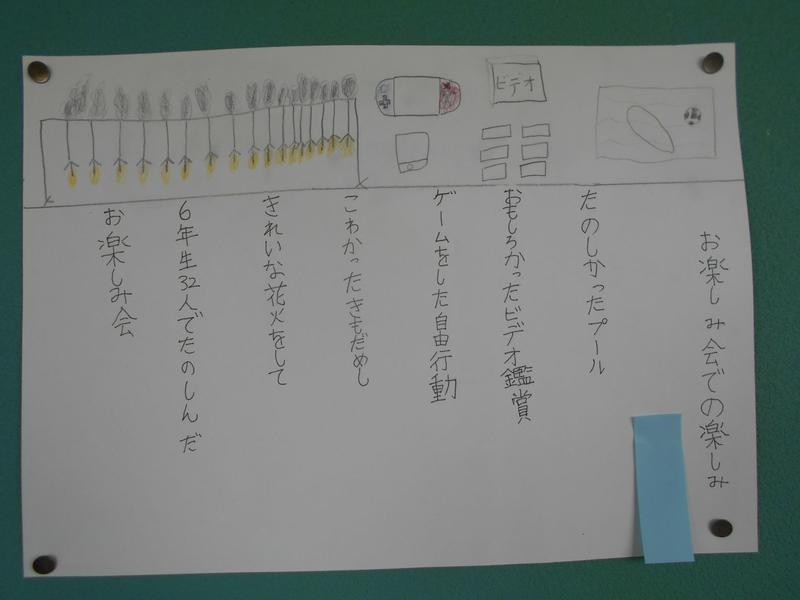 お楽しみ会での楽しみ
たのしかったプール
おもしろかったビデオ鑑賞
ゲームをした自由行動
こわかったきもだめし
きれいな花火をして
6年生32人でたのしんだ
お楽しみ会
ビデオ